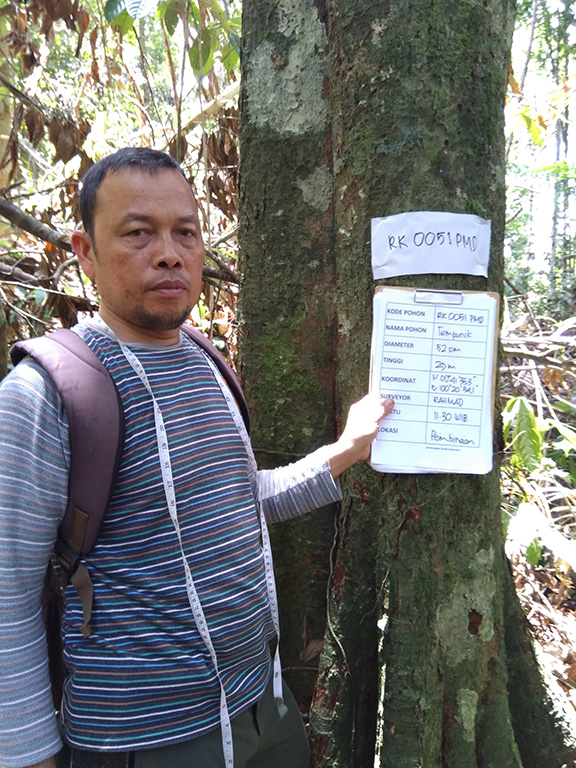 RK 0051 PMD
KODE POHON RK 0051 PMD
NAMA POHON Tempunik
DIAMETER 52 cm
TINGGI 25 m
KOORDINAT
SURVEYOR RAHMAD
KTU 11.30 WIB
LOKASI Pembinaan